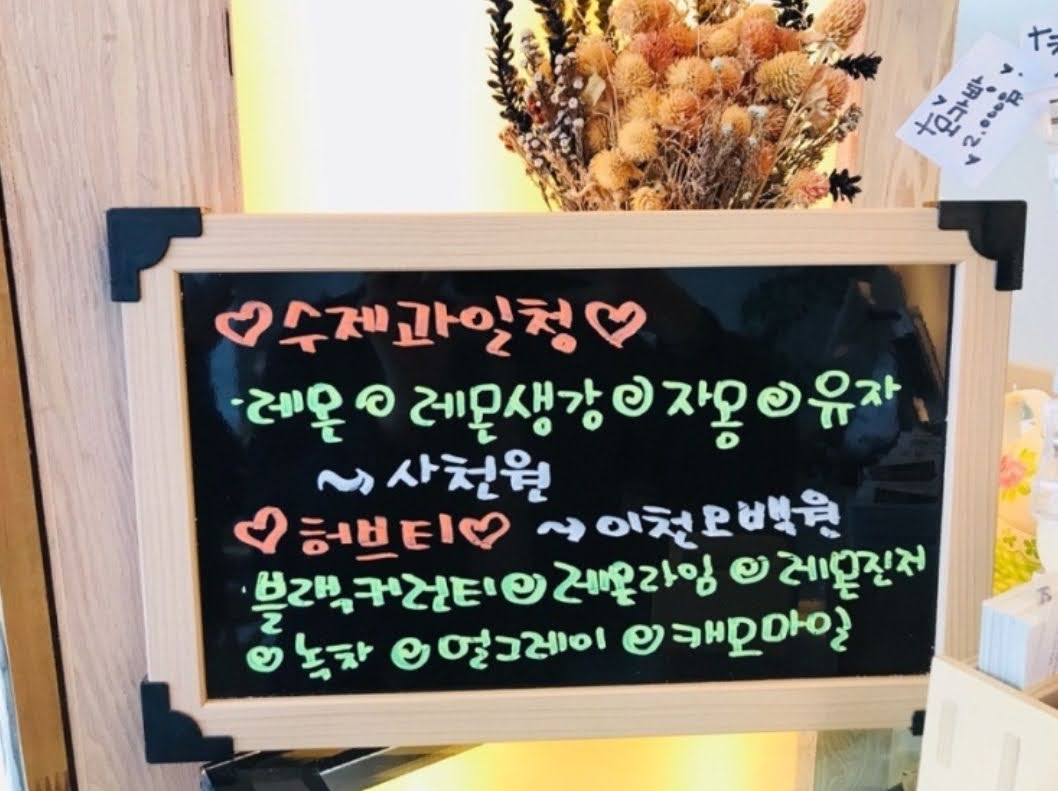 ♡수제과일청♡
·레몬 레몬생강 자몽 유자
~> 사천원
♡허브티♡ ~> 이천오백원
·블랙커런티 레몬라임 레몬진저
녹차 얼그레이 캐모마일
2,000원